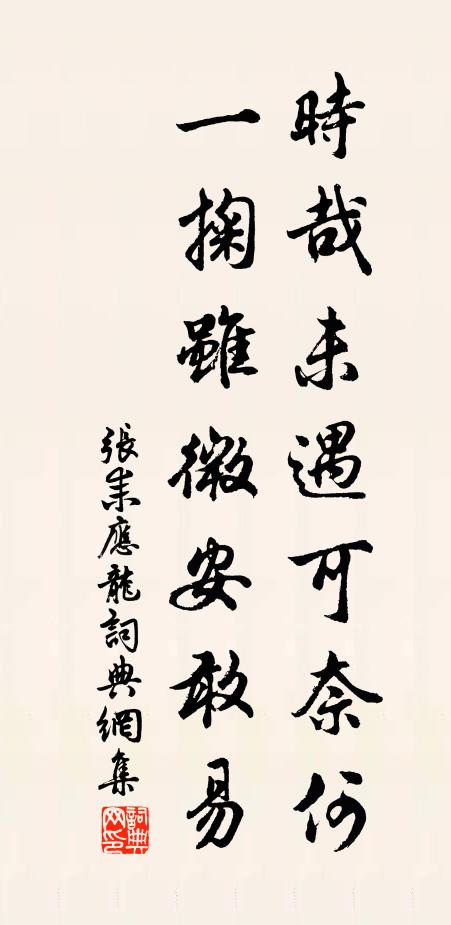 時哉未遇可奈何
一掬雖微安敢易
張耒應龍詞典網集
詞典
网印